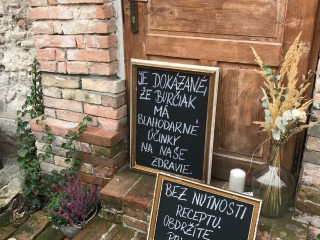 JE DOKÁZANÉ,
ŽE BURČIAK
MÁ
BLAHODARNÉ
ÚČINKY
NA NAŠE
ZDRAVIE.
BEZ NUTNOSTI
RECEPTU.
OBDRŽÍTE